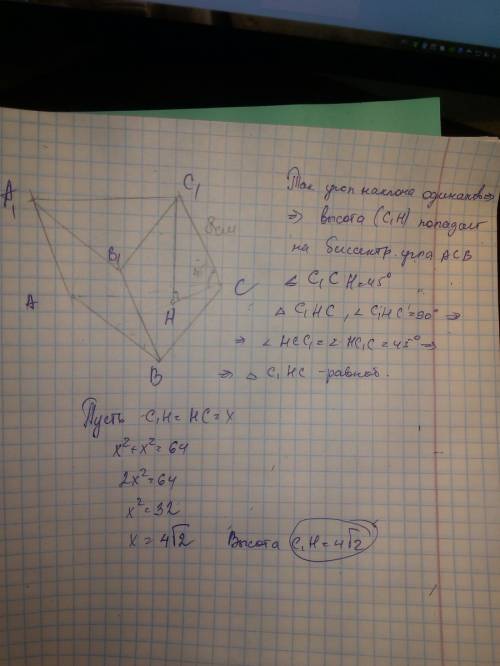 A₁
C₁
8 см
B₁
45°
C
A
H
B
Так угол наклона одинаков ⇒
⇒ высота (C₁H) попадает
на биссектр. угла ACB
∠ C₁CH=45°
△ C₁HC, ∠C₁HC=90° ⇒
⇒ ∠HCC₁=∠HC₁C=45° ⇒
⇒ △ C₁HC -равноб.
Пусть C₁H=HC=x
x²+x²=64
2x²=64
x²=32
x=4√2 Высота C₁H=4√2